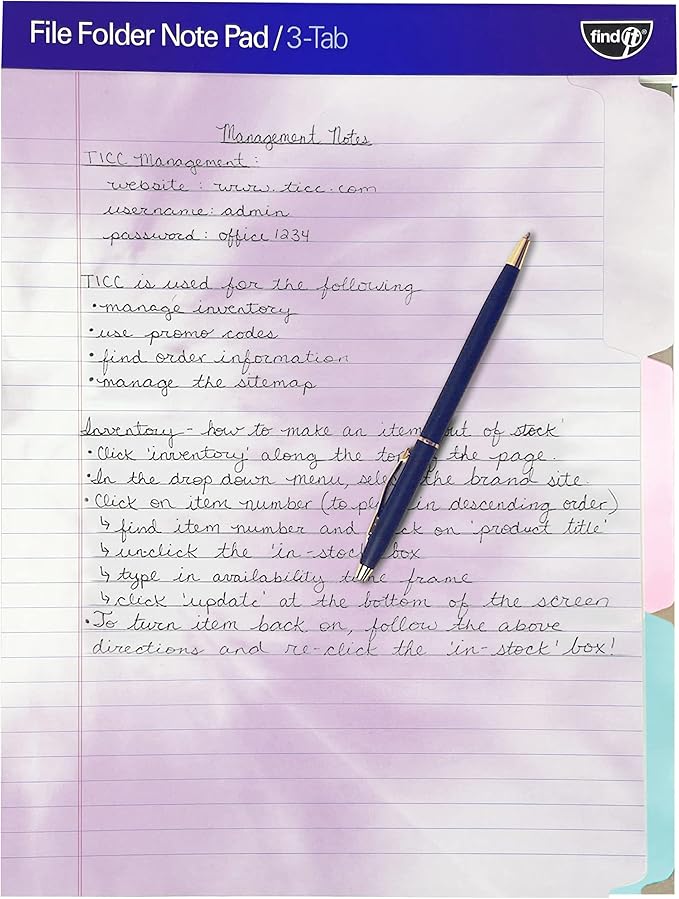 File Folder Note Pad / 3-Tab
find it®
Management Notes
TICC Management:
website: www.ticc.com
username: admin
password: office1234
TICC is used for the following
• manage inventory
• use promo codes
• find order information
• manage the sitemap
Inventory - how to make an item out of stock'
• Click 'inventory' along the top of the page.
• In the drop down menu, select the brand site.
• Click on item number (to in descending order)
↳ find item number and click on 'product title'
↳ unclick the 'in-stock' box
↳ type in availability time frame
↳ click 'update' at the bottom of the screen
• To turn item back on, follow the above
directions and re-click the 'in-stock' box!